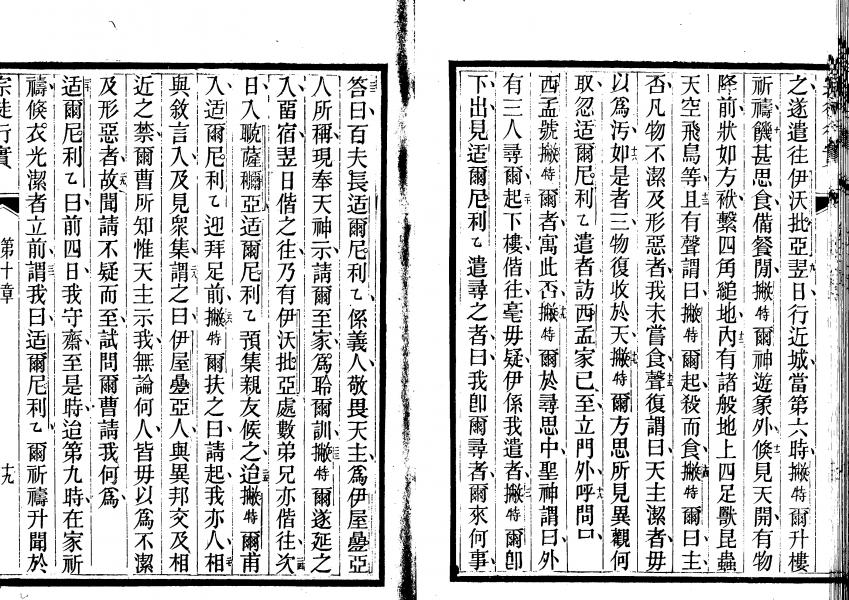 之遂遣往伊沃批亞翌日行近城當第六時撇特爾升樓
祈禱饑甚思食備餐閒撇特爾神遊象外倏見天開有物
降前狀如方袱繫四角縋地內有諸般地上四足獸昆蟲
天空飛鳥等且有聲謂曰撇特爾起殺而食撇特爾曰主
否凡物不潔及形惡者我未嘗食聲復謂曰天主潔者毋
以為污如是者三物復收於天撇特爾方思所見異觀何
取忽适爾尼利乙遣者訪西孟家已至立門外呼問曰
西孟號撇特爾者寓此否撇特爾於尋思中聖神謂曰外
有三人尋爾起下樓偕往毫毋疑伊係我遣者撇特爾卽
下出見适爾尼利乙遣尋之者曰我卽爾尋者爾來何事
答曰百夫長适爾尼利乙係義人敬畏天主為伊屋疊亞
人所稱現奉天神示請爾至家為聆爾訓撇特爾遂延之
入畱宿翌日偕之往乃有伊沃批亞處數弟兄亦偕往次
日入贼薩穪亞适爾尼利乙預集親友候之迨撇特爾甫
入适爾尼利乙迎拜足前撇特爾扶之曰請起我亦人相
與敘言入及見眾集謂之曰伊屋疊亞人與異邦交及相
近之禁爾曹所知惟天主示我無論何人皆毋以為不潔
及形惡者故聞請不疑而至試問爾曹請我何為
适爾尼利乙曰前四日我守齋至是時迨第九時在家祈
禱倏衣光潔者立前謂我曰适爾尼利乙爾祈禱升聞於
宗徒行實
第十章
十九